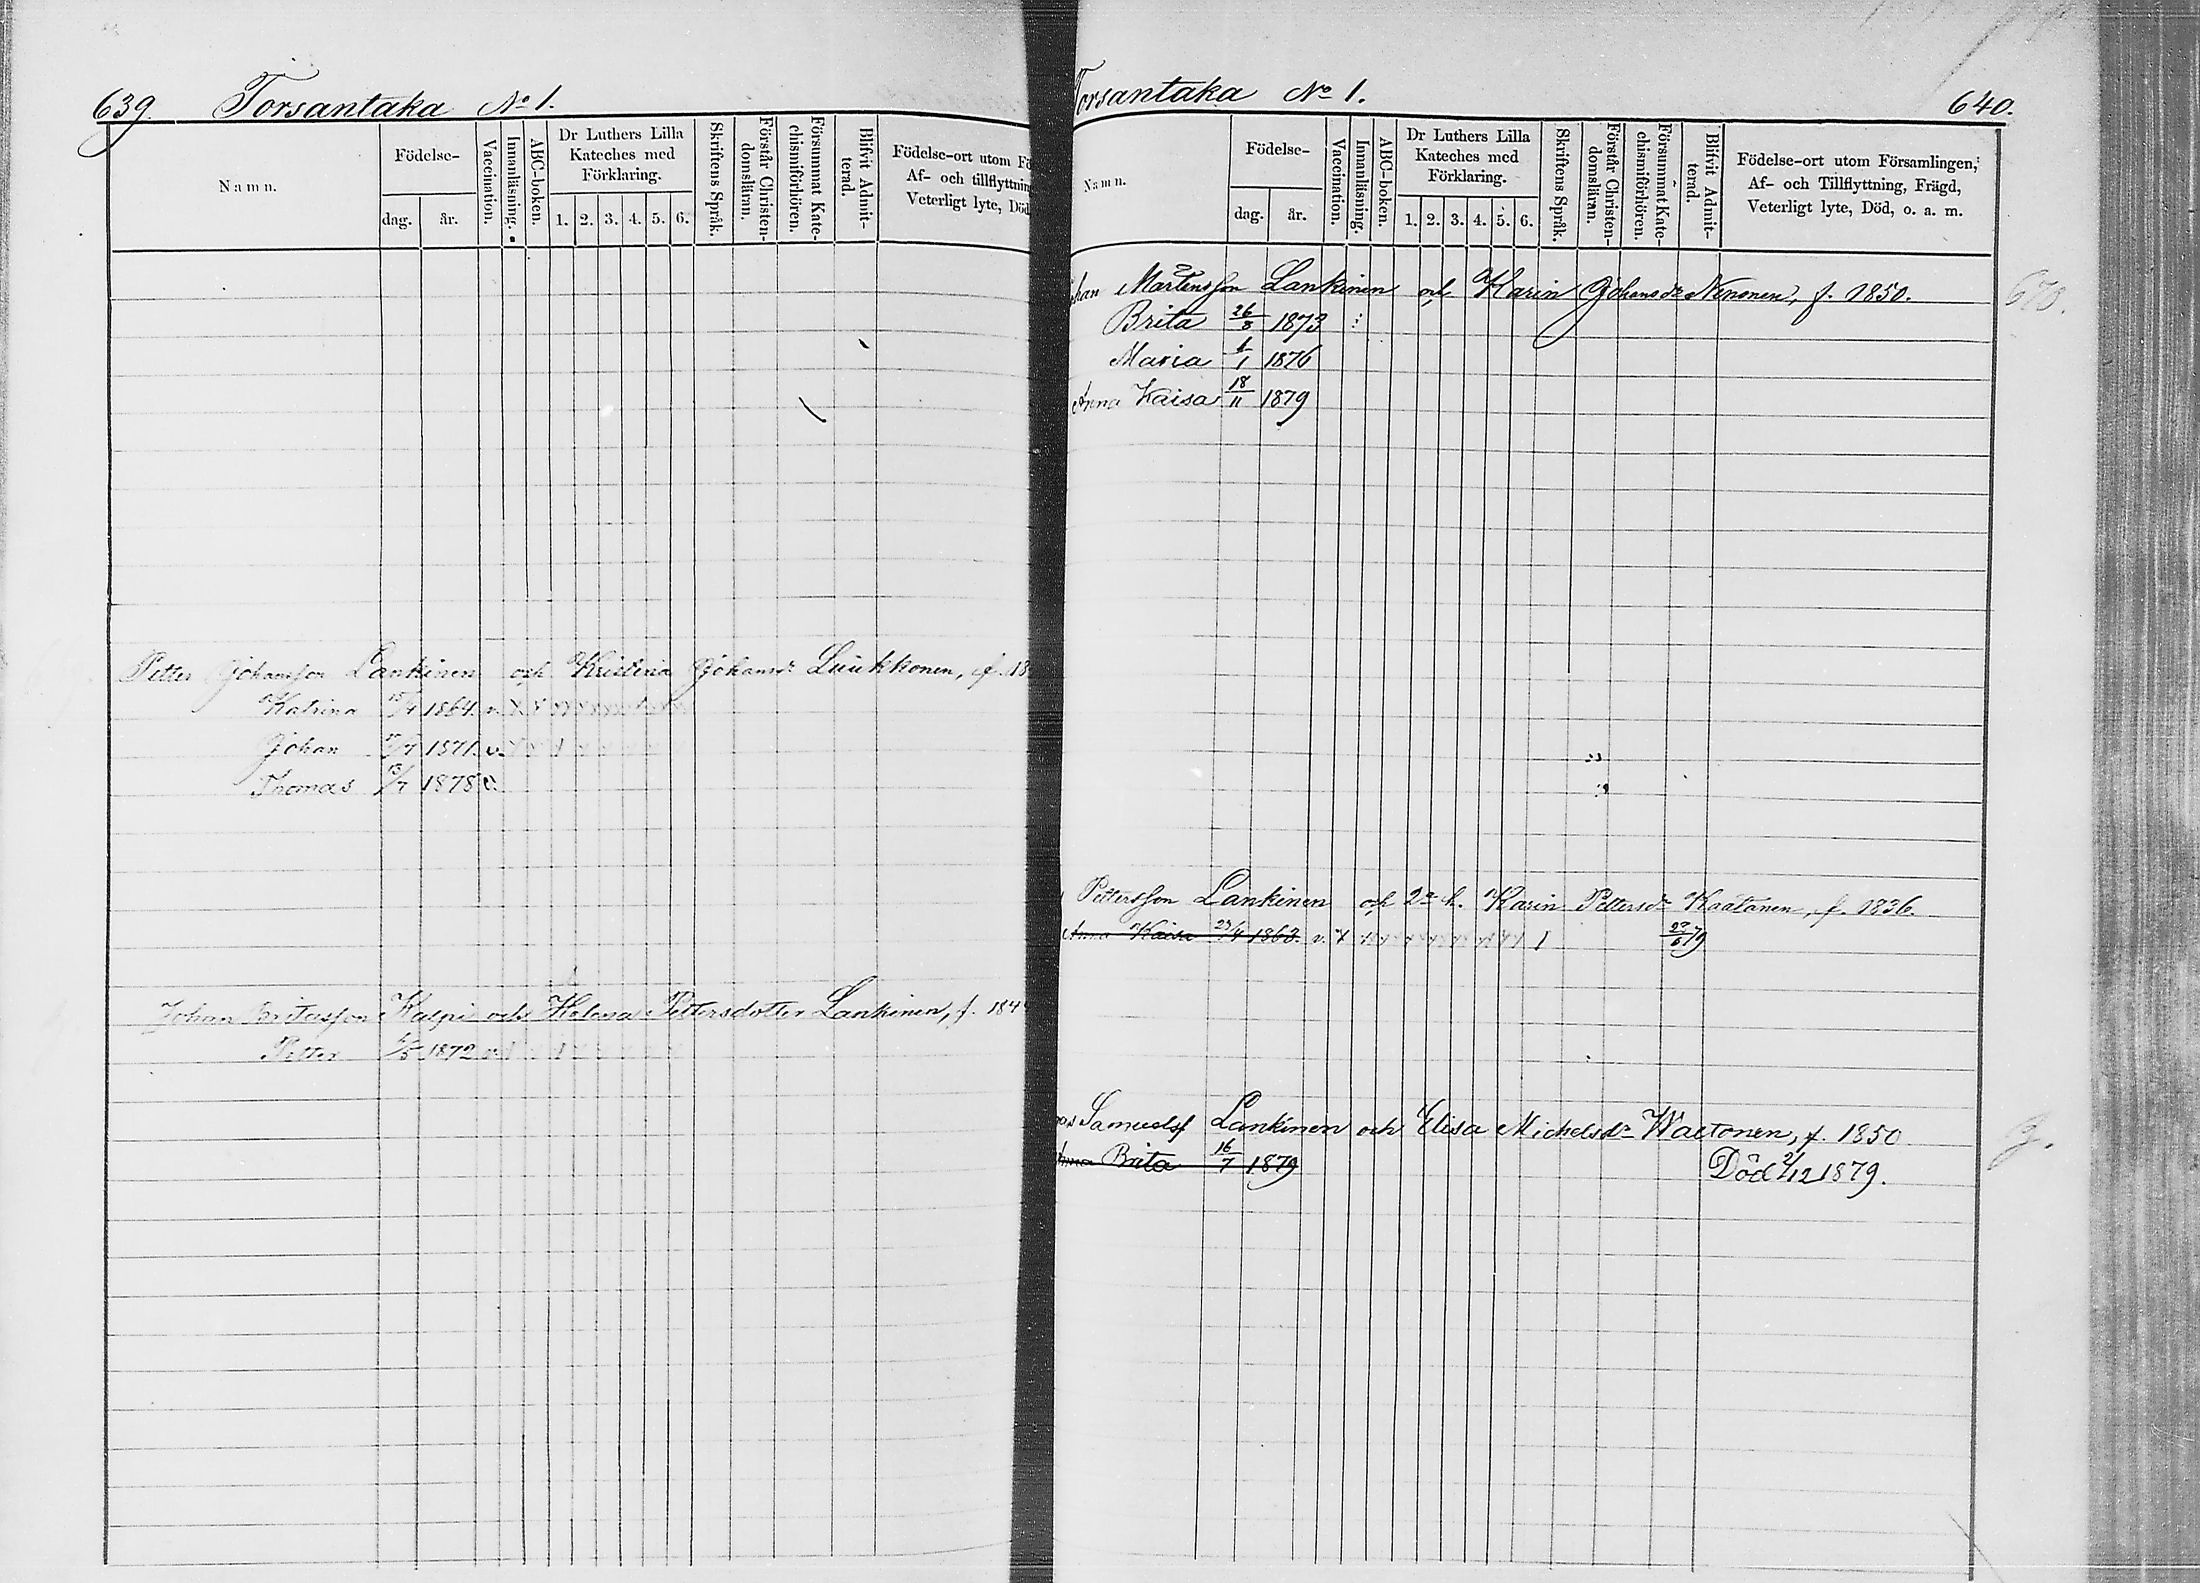 639. Torsantaka No 1.
Namn.
Födelse-
dag. år.
Vaccination.
Innanläsning.
ABC-boken.
Dr Luthers Lilla
Kateches med
Förklaring.
1. 2. 3. 4. 5. 6.
Skriftens Språk.
Förstår Christen-
domsläran.
Försummat Kate-
chismiförhören.
Blifvit Admit-
terad.
Födelse-ort utom
Af- och tillflyttnin
Veterligt lyte, Död
Petter Johansson Lankinen och Kristina Johansdr Luukkonen, f. 18
Katrina 1864. v.
Johan 1871. v.
Thomas 13/7 1878 v.
Johan Britasson Kalpi och Helena Pettersdotter Lankinen, f. 184
Petter 1872
Torsantaka No 1. 640.
Namn.
Födelse-
dag. år.
Vaccination.
Innanläsning.
ABC-boken.
Dr Luthers Lilla
Kateches med
Förklaring.
1. 2. 3. 4. 5. 6.
Skriftens Språk.
Förstår Christen-
domsläran.
Försummat Kate-
chismiförhören.
Blifvit Admit-
terad.
Födelse-ort utom Församlingen,
Af- och Tillflyttning, Frägd,
Veterligt lyte, Död, o. a. m.
han Mårtensson Lankinen och Karin Johansdr Nenonen, f. 1850. 670.
Brita 26/8 1873
Maria 1/1 1876
Anna Kaisa 18/11 1879
Pettersson Lankinen och 2a h. Karin Pettersdr Kaatanen, f. 1836.
Anna Kaisa 23/4 1863. v.
Samuelsf Lankinen och Elisa Michelsdr Waetonen, f. 1850
Anna Brita 16/7 1879 Död 2/12 1879.